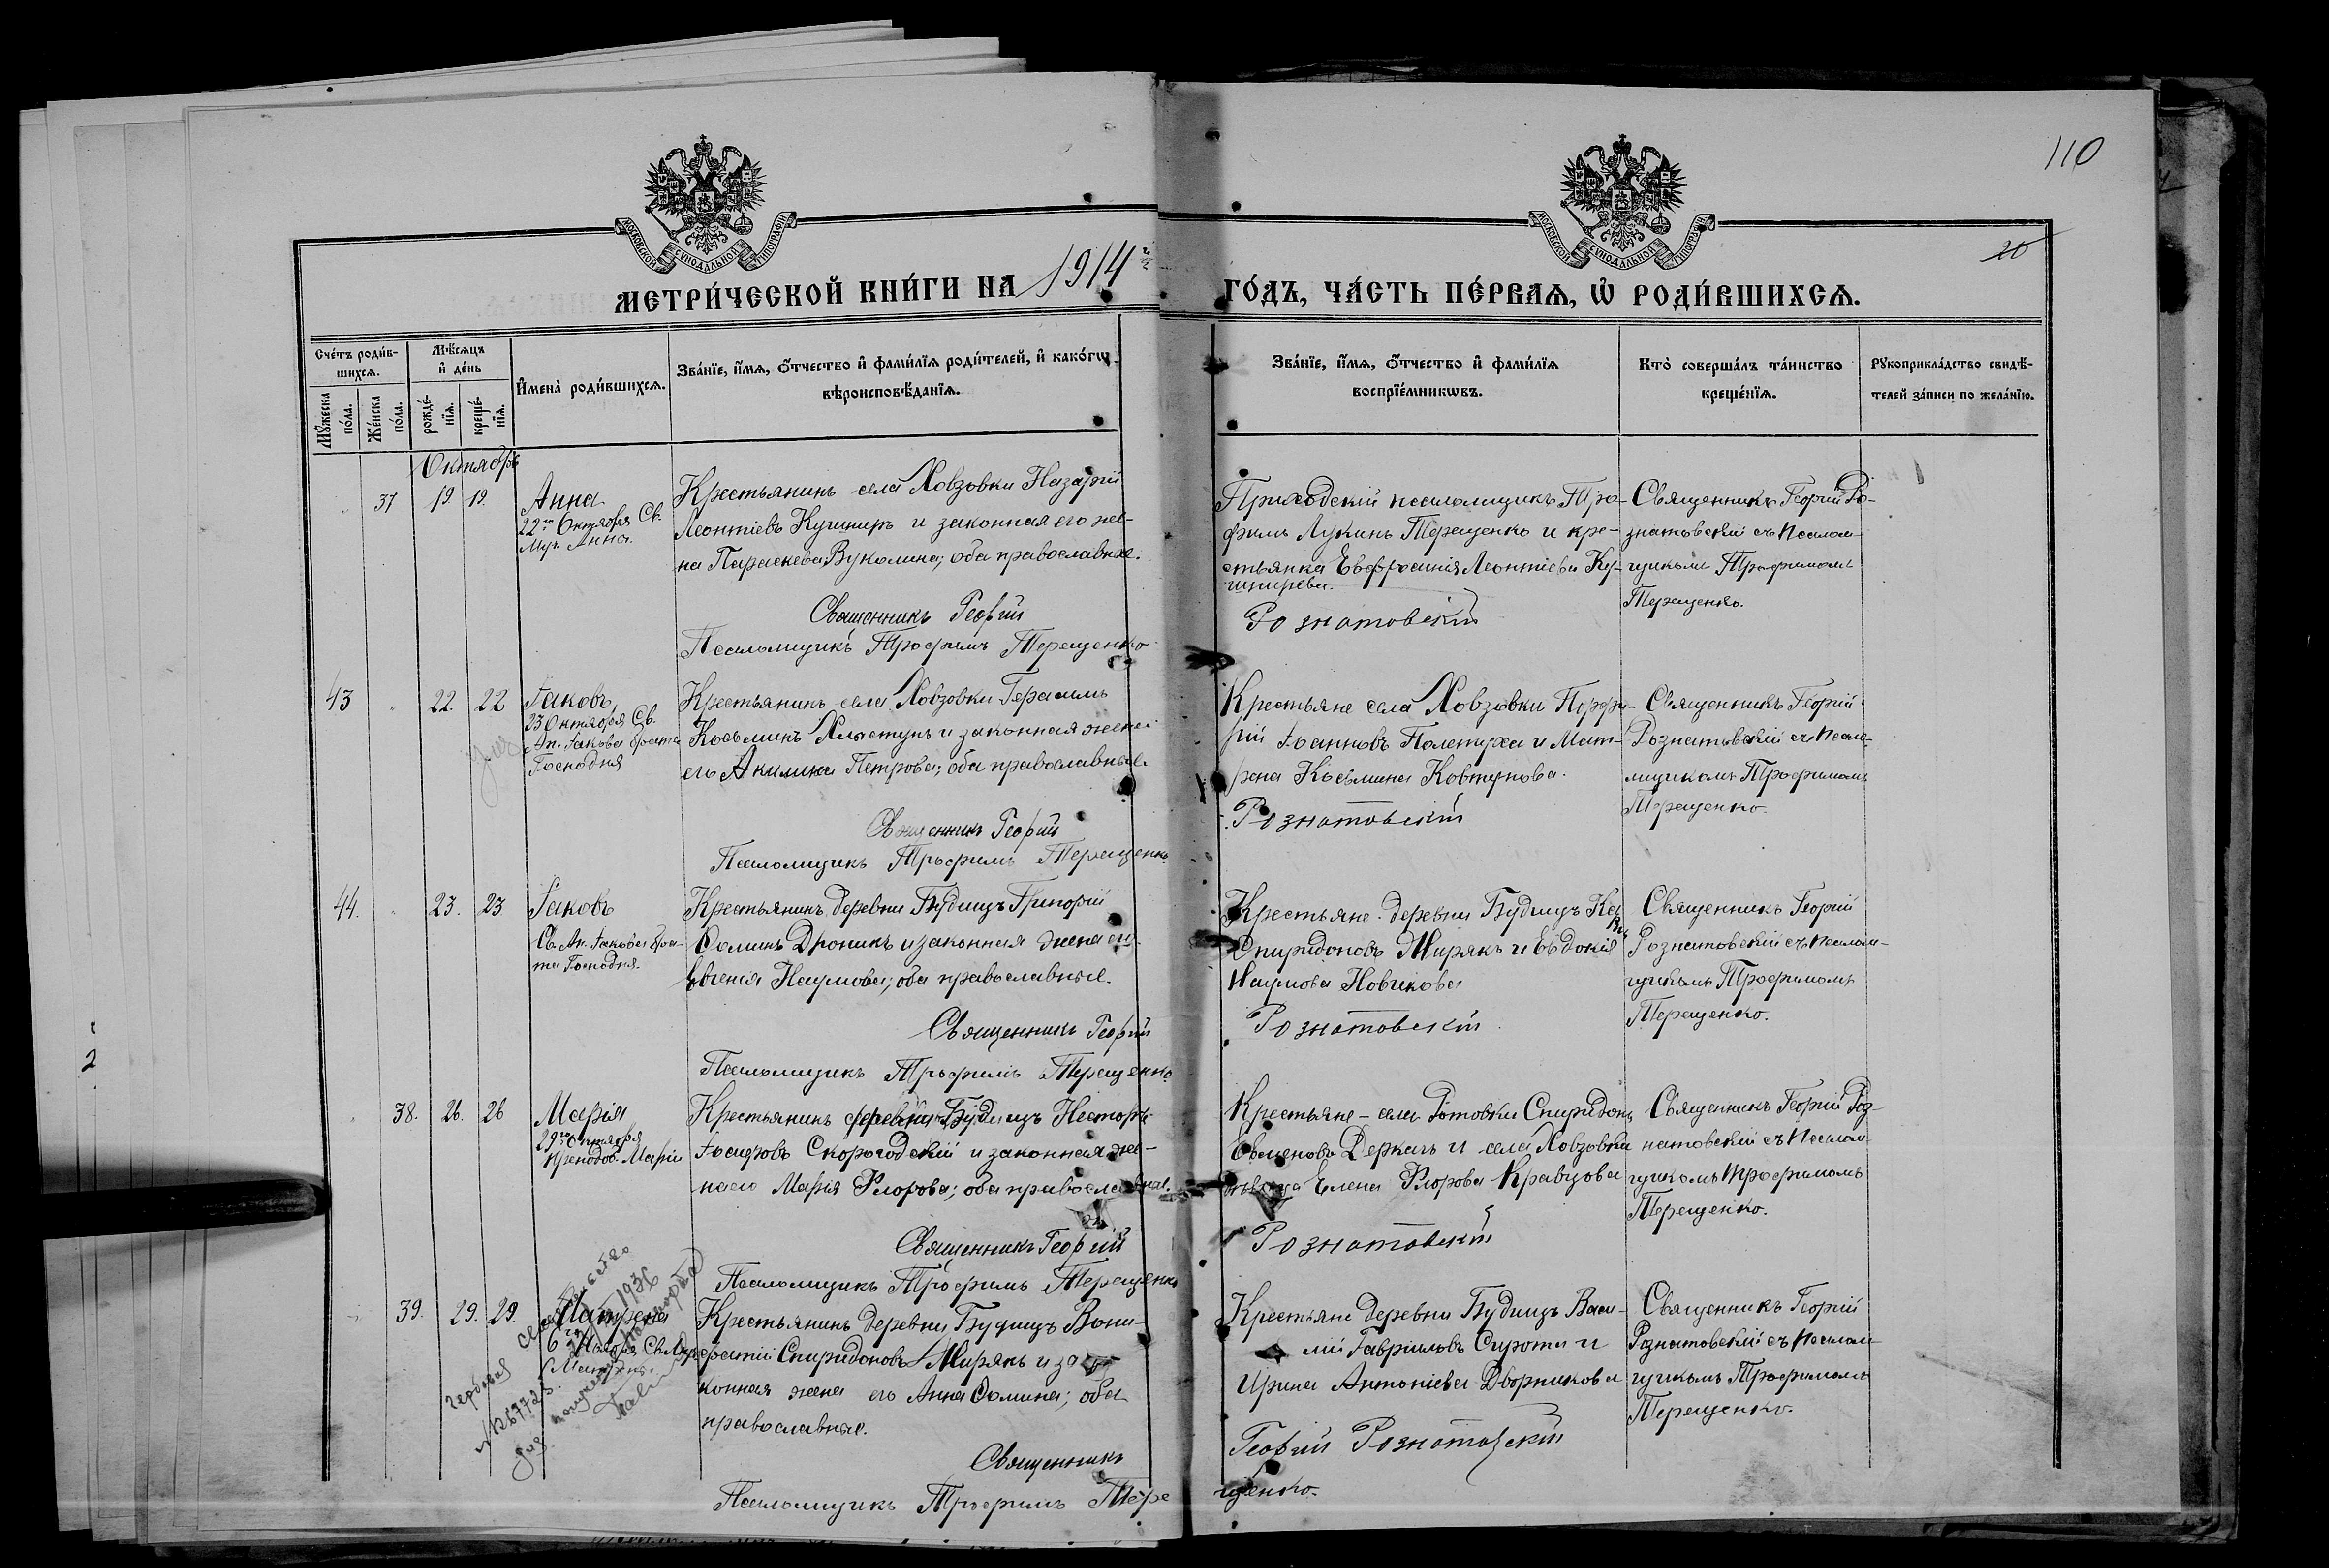 110
20
МОСКОВСКОЙ СѴНОДАЛЬНОЙ ТИПОГРАФІИ
МОСКОВСКОЙ СѴНОДАЛЬНОЙ ТИПОГРАФІИ
МЕТРИ́ЧЕСКОЙ КНИ́ГИ НА 1914
ГО́ДЪ, ЧА́СТЬ ПЕ́РВАѦ, Ѡ҆ РОДИ́ВШИХСѦ.
Сче́тъ роди́в-
шихсѧ.
Мѹ́жеска по́ла.
Же́нска по́ла.
Мѣ́сѧцъ
и҆ де́нь
рожде́-
нїѧ.
креще́-
нїѧ.
И҆мена̀ роди́вшихсѧ.
Зва́нїе, и҆́мѧ, ѻ҆́тчество и҆ фами́лїѧ роди́телей, и҆ како́гѡ
вѣроисповѣ́данїѧ.
Зва́нїе, и҆́мѧ, ѻ҆́тчество и҆ фами́лїѧ
воспрїе́мникѡвъ.
Кто̀ соверша́лъ та́инство
креще́нїѧ.
Рѹкоприкла́дство свидѣ́-
телей за́писи по жела́нїю.
Октябрь
37 19. 19. Анна
22го Октября Св.
Муч. Анна.
Крестьянинъ села Ховзовки Назарій
Леонтіевъ Кушниръ и законная его же-
на Параскева Вуколина; оба православные.
Священникъ Георгій
Псаломщикъ Трофимъ Терещенко
Приходскій псаломщикъ Тро-
фимъ Лукинъ Терещенко и кре-
стьянка Евфросинія Леонтіева Ку-
шнирева.
Рознатовскій
Священникъ Георгій Ро-
знатовскій съ псалом-
щикомъ Трофимомъ
Терещенко.
43 22. 22 Іаковъ
23 Октября Св.
Ап. Іакова брата
Господня
Крестьянинъ села Ховзовки Герасимъ
Косьминъ Хлистунъ и законная жена
его Акилина Петрова; оба православные.
Священникъ Георгій
Псаломщикъ Трофимъ Терещенко
Крестьяне села Ховзовки Порфи-
рій Іоанновъ Полетуха и Мат-
рона Косьмина Ковтунова.
Рознатовскій
Священникъ Георгій
Рознатовскій съ псало-
мщикомъ Трофимомъ
Терещенко.
44. 23. 23 Іаковъ
Св. Ап. Іакова бра-
та Господня.
Крестьянинъ деревни Будищъ Григорій
Ѳоминъ Дроникъ и законная жена его
Евгенія Наумова; оба православные.
Священникъ Георгій
Псаломщикъ Трофимъ Терещенко
Крестьяне деревни Будищъ
Спиридоновъ Мирякъ и Евдокія
Наумова Новикова
Рознатовскій
Священникъ Георгій
Рознатовскій съ псалом-
щикомъ Трофимомъ
Терещенко.
38. 26. 26 Марія
29го Октября
Преподоб. Маріи
Крестьянинъ деревни Будищъ Несторъ
Іосифовъ Скороходскій и законная же-
на его Марія Флорова; оба православные.
Священникъ Георгій
Псаломщикъ Трофимъ Терещенко
Крестьяне - села Ротовки Спиридонъ
Евсеновъ Деркачъ и села Ховзовки
Елена Флорова Кравцова
Рознатовскій
Священникъ Георгій Роз-
натовскій съ псалом-
щикомъ Трофимомъ
Терещенко.
39. 29. 29. Матрена
Крестьянинъ деревни Будищъ Вони-
фатій Спиридоновъ Мирякъ и за-
конная жена его Анна Ѳомина; оба
православные.
Священникъ
Псаломщикъ Трофимъ Тере
Крестьяне деревни Будищъ Васи-
лий Гавриловъ Сирота и
Ирина Антоніева Дворникова
Георгій Рознатовскій
щенко.
Священникъ Георгій
Рознатовскій съ псалом-
щикомъ Трофимомъ
Терещенко.